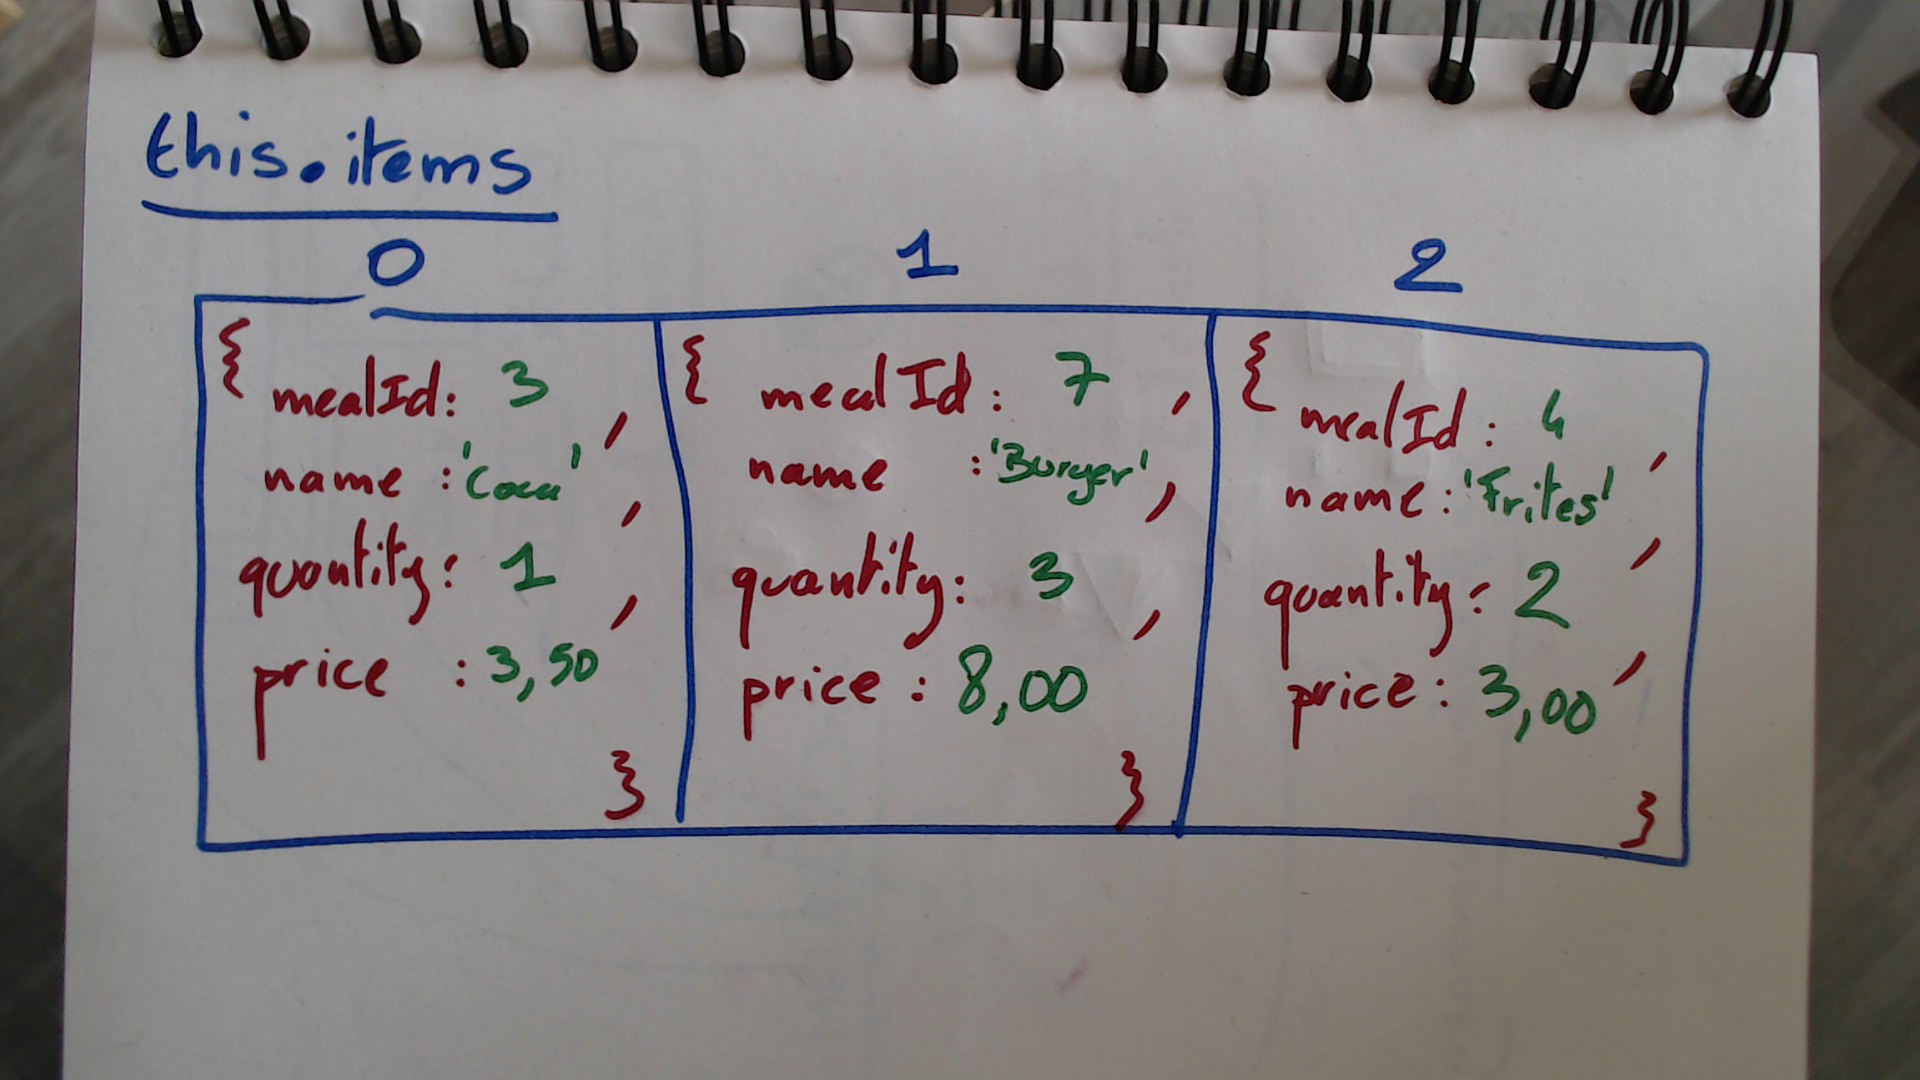 this.items
0 1 2
{ mealId: 3 ,
name : 'Coca' ,
quantity : 1 ,
price : 3,50
}
{ mealId : 7 ,
name : 'Burger' ,
quantity : 3 ,
price : 8,00
}
{ mealId : 4 ,
name : 'Frites' ,
quantity : 2 ,
price : 3,00
}